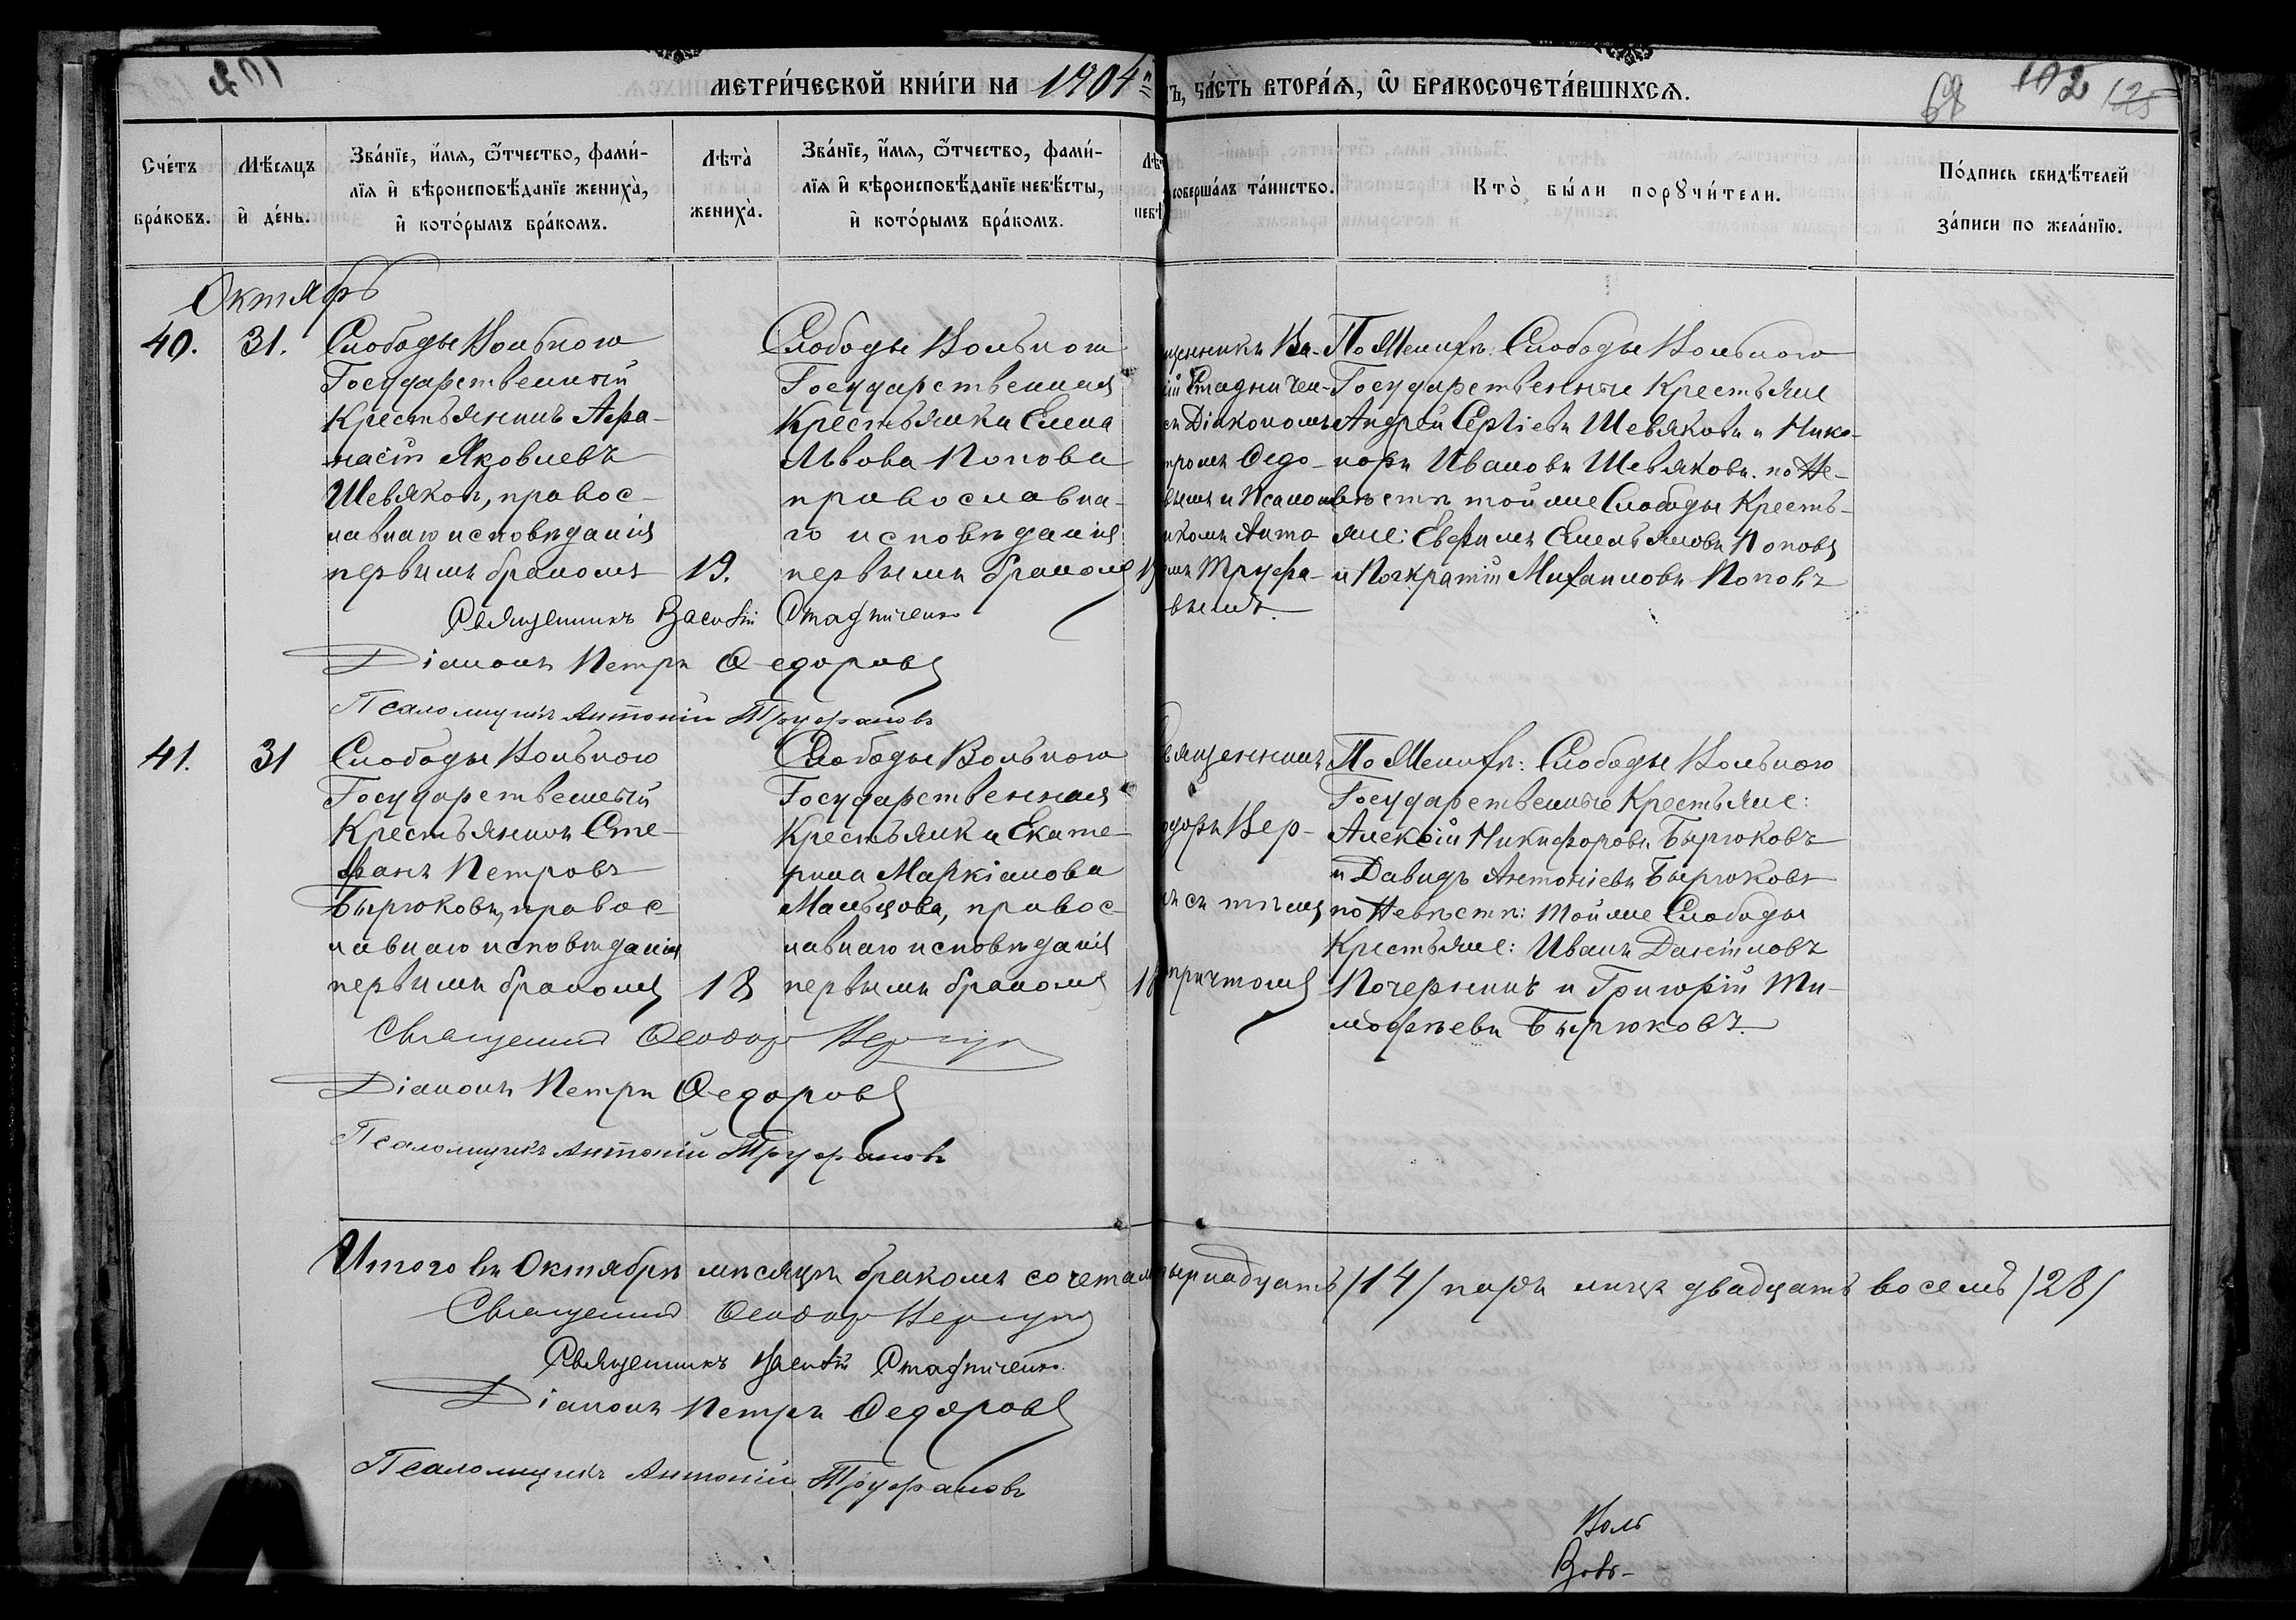 МЕТРИ́ЧЕСКОЙ КНИ́ГИ НА 1904
ЧА́СТЬ ВТОРА́Я, Ѿ БРАКОСОЧЕТА́ВШИХСЯ.
102
Сче́тъ бра́ковъ.
Мѣ́сяцъ и҆ де́нь.
Зва́нїе, и҆́мя, ѻ҆́тчество, фами́-
лїя и҆ вѣроисповѣ́данїе жениха̀,
и҆ кото́рымъ бра́комъ.
Лѣта̀ жениха̀.
Зва́нїе, и҆́мя, ѻ҆́тчество, фами́-
лїя и҆ вѣроисповѣ́данїе невѣ́сты,
и҆ кото́рымъ бра́комъ.
соверша́лъ та́инство.
Кто̀ бы́ли порꙋчи́тели.
По́дпись свидѣ́телей
за́писи по жела́нїю.
Октябрь
40.
31.
Слободы Вольного
Государственный
Крестьянинъ Афа-
насій Яковлевъ
Шевяковъ, правос-
лавнаго исповѣданія
первымъ бракомъ
19.
Слободы Вольного
Государственная
Крестьянка Елена
Львова Попова
православна-
го исповѣданія
первымъ бракомъ
щенникъ Ва-
ій Стадничен-
съ Діакономъ
тромъ Ѳедо-
вымъ и Псалом
икомъ Анто
Труфа-
вымъ.
По Женихѣ: Слободы Вольного
Государственные Крестьяне
Андрей Сергіевъ Шевяковъ и Ника-
норъ Ивановъ Шевяковъ. по Не-
вѣстѣ той же Слободы Кресть-
яне: Евфимъ Емельяновъ Поповъ
и Панкратій Михаиловъ Поповъ
Священникъ Василій Стадниченко
Діаконъ Петръ Ѳедоровъ
Псаломщикъ Антоній Труфановъ
41.
31
Слободы Вольного
Государственный
Крестьянинъ Сте-
фанъ Петровъ
Бирюковъ, правос-
лавнаго исповѣданія
первымъ бракомъ
18
Слободы Вольного
Государственная
Крестьянка Екате-
рина Маркіанова
Мальцова, правос-
лавнаго исповѣданія
первымъ бракомъ
18
вященникъ
одоръ Вер-
съ тѣмъ
причтомъ
По Женихѣ: Слободы Вольного
Государственные Крестьяне:
Алексій Никифоровъ Бирюковъ
и Давидъ Антоніевъ Бирюковъ
по Невѣстѣ: той же Слободы
Крестьяне: Иванъ Даніиловъ
Почернинъ и Григорій Ти-
мофѣевъ Бирюковъ.
Священникъ Ѳеодоръ
Діаконъ Петръ Ѳедоровъ
Псаломщикъ Антоній Труфановъ
Итого въ Октябрѣ мѣсяцѣ бракомъ сочетал
ырнадцать /14/ паръ лицъ двадцать восемь /28/
Священникъ Ѳеодоръ
Священникъ Василій Стадниченко
Діаконъ Петръ Ѳедоровъ
Псаломщикъ Антоній Труфановъ